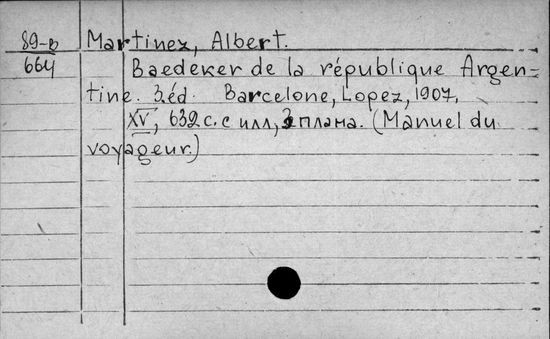 89-в Martinez, Albert.
664 Baedeker de la république Argen-
tine. 3.éd. Barcelone, Lopez, 1907.
XV, 632 с. с илл, 3 плана. (Manuel du
voyageur.)